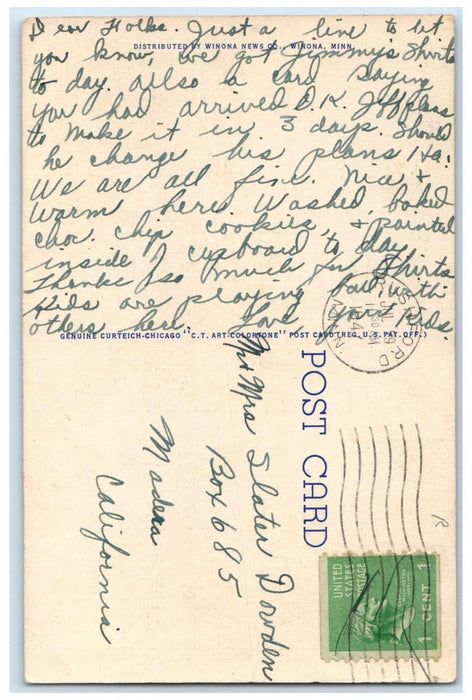 Dear Folks. Just a line to let
DISTRIBUTED BY WINONA NEWS CO., WINONA, MINN.
you know, we got Jimmys Shirts
to day. Also a card saying
you had arrived O.K. Jeff plans
to make it in 3 days. Should
he change his plans Ha.
We are all fine. Nice +
Warm here. Washed, baked
choc. chip cookies, + painted
inside 1 cupboard to day.
Thanks so much for Shirts
Kids are playing ball with
others here. Love your Kids.
GENUINE CURTEICH-CHICAGO "C.T. ART-COLORTONE" POST CARD (REG. U.S. PAT. OFF.)
RUSHFORD
MINN.
POST CARD
Mr + Mrs Slater Dowden
Box 685
Madera
California
UNITED
STATES
POSTAGE
1 CENT 1
R